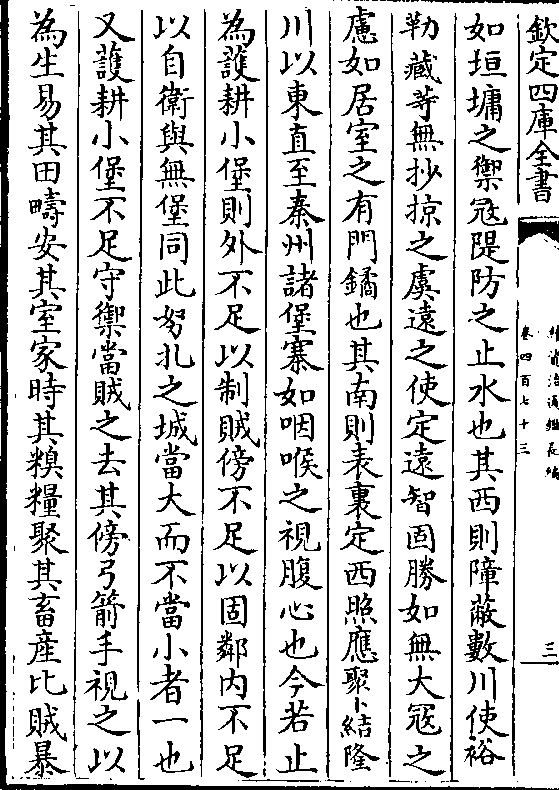 欽定四庫全書
續資治通鑑長編
卷四百七十三
三
如垣墉之禦冦隄防之止水也其西則障蔽數川使裕
勒藏等無抄掠之虞遠之使定遠智固勝如無大冦之
慮如居室之有門鐍也其南則表裏定西照應聚卜結隆
川以東直至秦州諸堡寨如咽喉之視腹心也今若止
為護耕小堡則外不足以制賊傍不足以固鄰内不足
以自衛與無堡同此努扎之城當大而不當小者一也
又護耕小堡不足守禦當賊之去其傍弓箭手視之以
為生易其田疇安其室家時其糗糧聚其畜產比賊暴